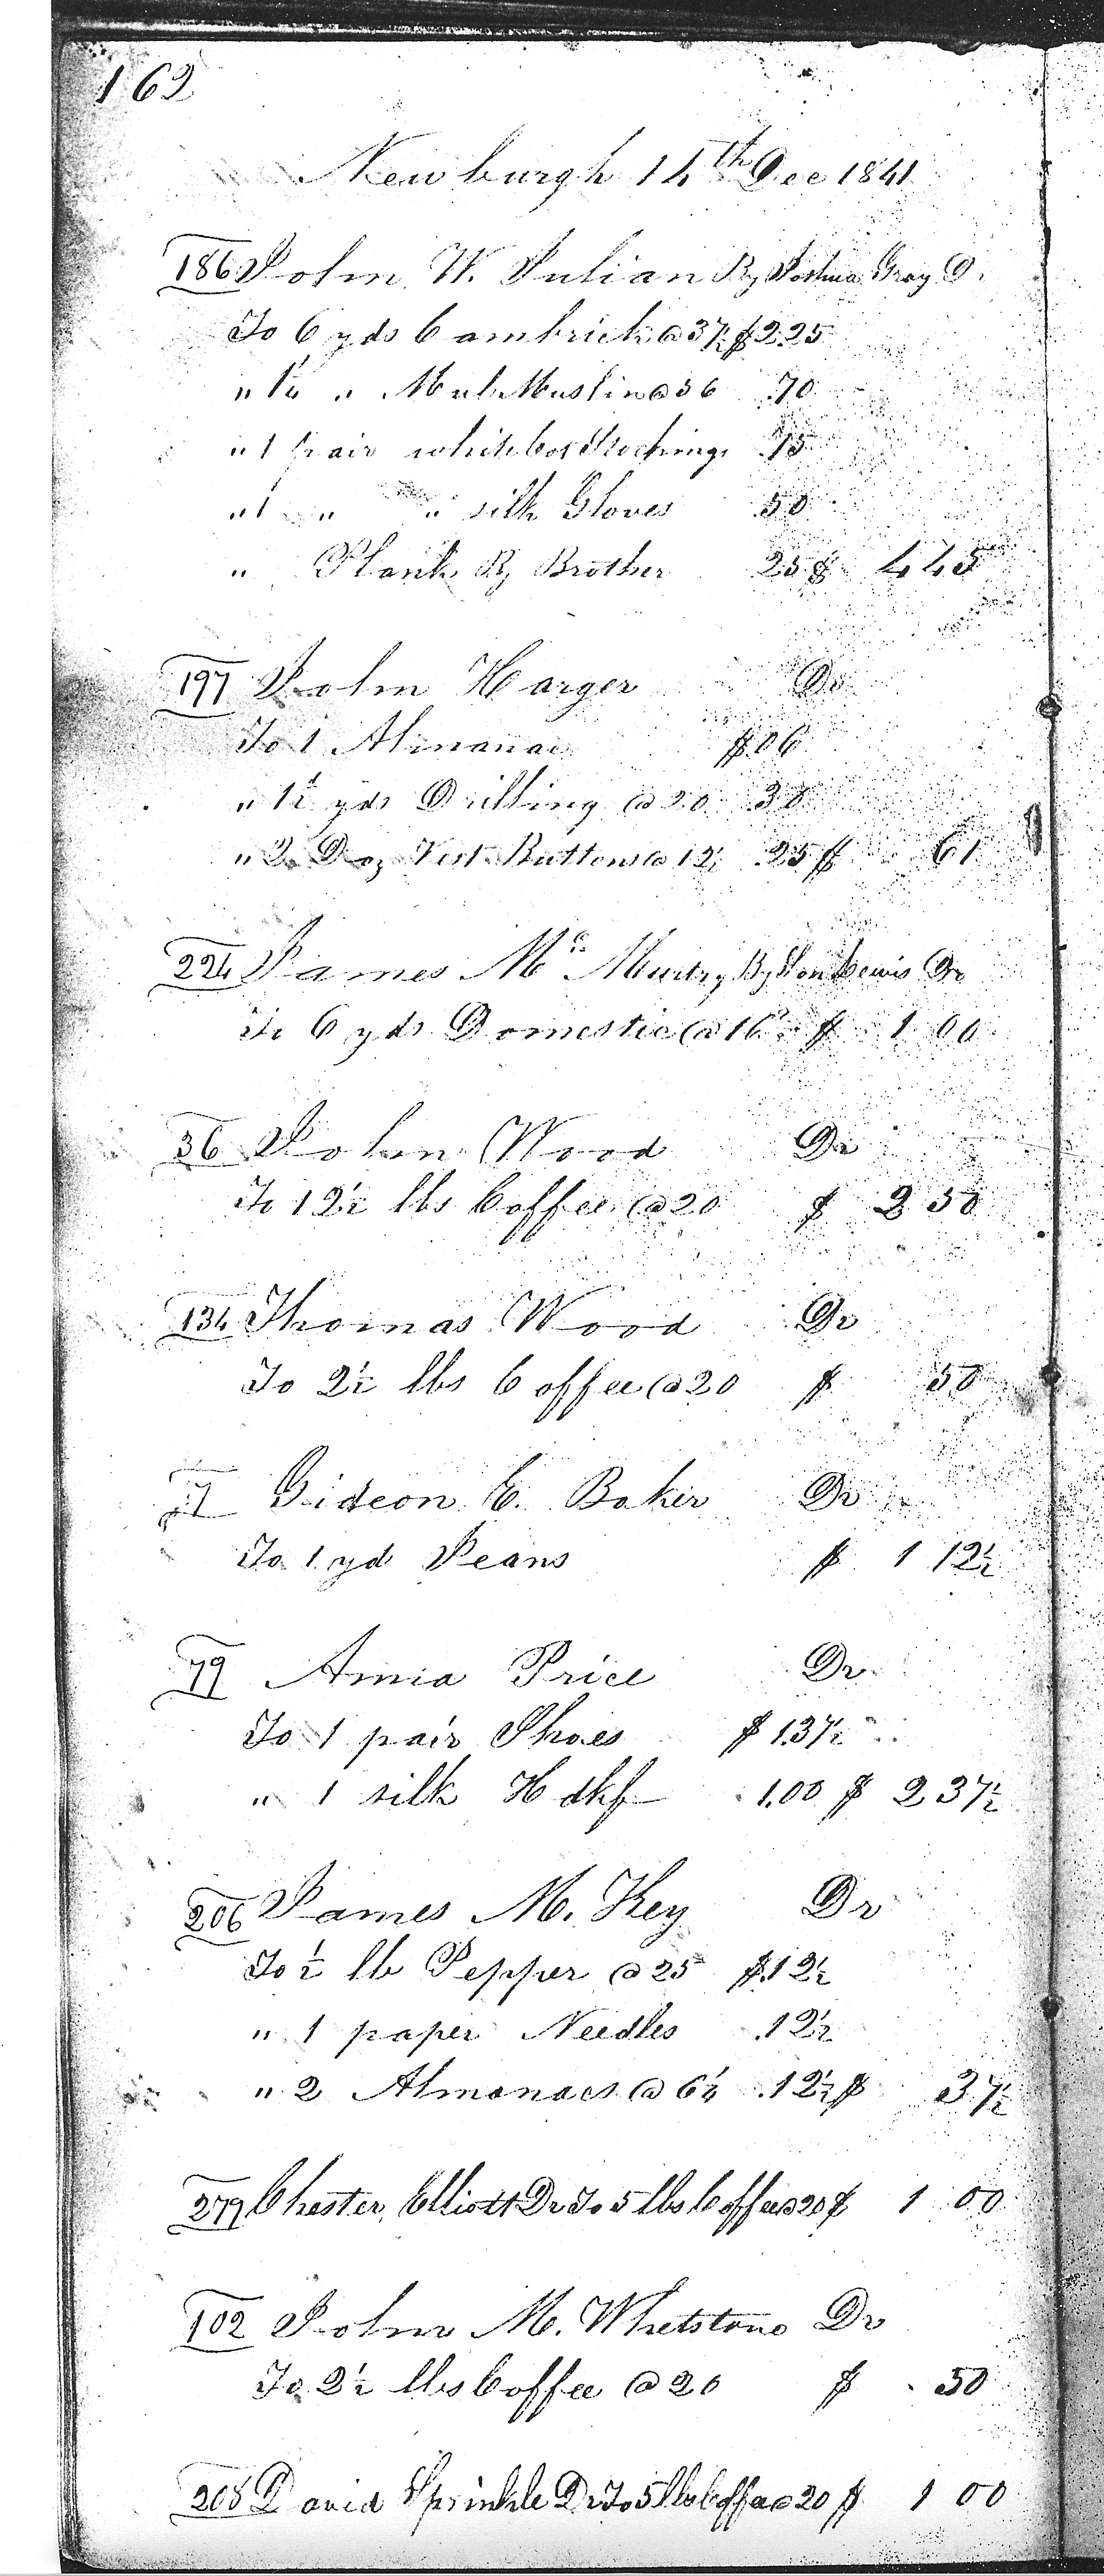 162
Newburgh 14th Dec 1841
186 John W. Julian By Joshua Gray Dr
To 6 yds Cambrick @ 37½ $2.25
" 1¼ " Mul Muslin @ 56 .70
" 1 pair white Cot Stockings .75
" 1 " " silk Gloves .50
" Plank By Brother 25 $ 4 45
197 John Harger Dr
To 1 Almanac $06
" 1½ yds Drilling @ 20 .30
" 2 Doz Vest Buttons @ 12½ .25 $ 61
224 James Mc Murtry By Son Lewis Dr
To 6 yds Domestic @ 16 $ 1 00
36 John Wood Dr
To 12½ lbs Coffee @ 20 $ 2 50
134 Thomas Wood Dr
To 2½ lbs Coffee @ 20 $ 50
7 Gideon E. Baker Dr
To 1 yd Jeans $ 1 12½
79 Amia Price Dr
To 1 pair Shoes $ 1.37½
" 1 silk Hdkf 1.00 $ 2 37½
206 James M. Key Dr
To ½ lb Pepper @ 25 $.12½
" 1 paper Needles .12½
" 2 Almanacs @ 6¼ .12½ $ 37½
279 Chester Elliott Dr To 5 lbs Coffee @ 20 $ 1 00
102 John M. Whetstone Dr
To 2½ lbs Coffee @ 20 $ .50
208 David Sprinkle Dr To 5 lbs Coffee @ 20 $ 1 00